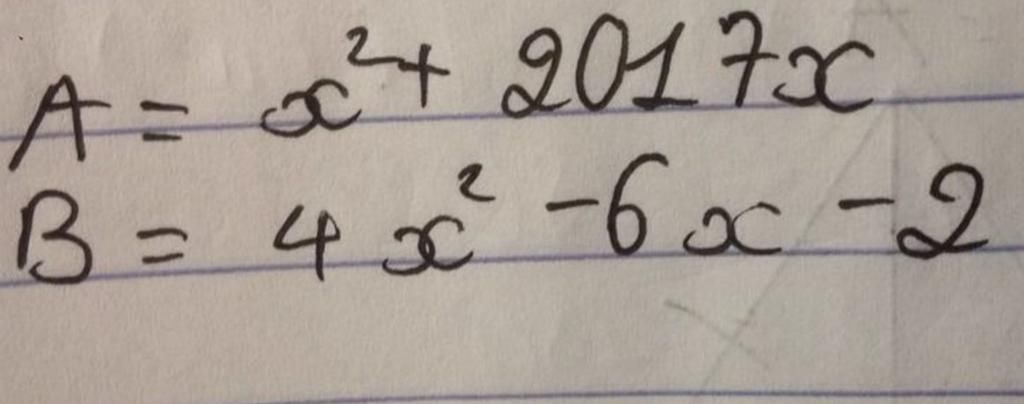 A = x² + 2017x
B = 4x² - 6x - 2